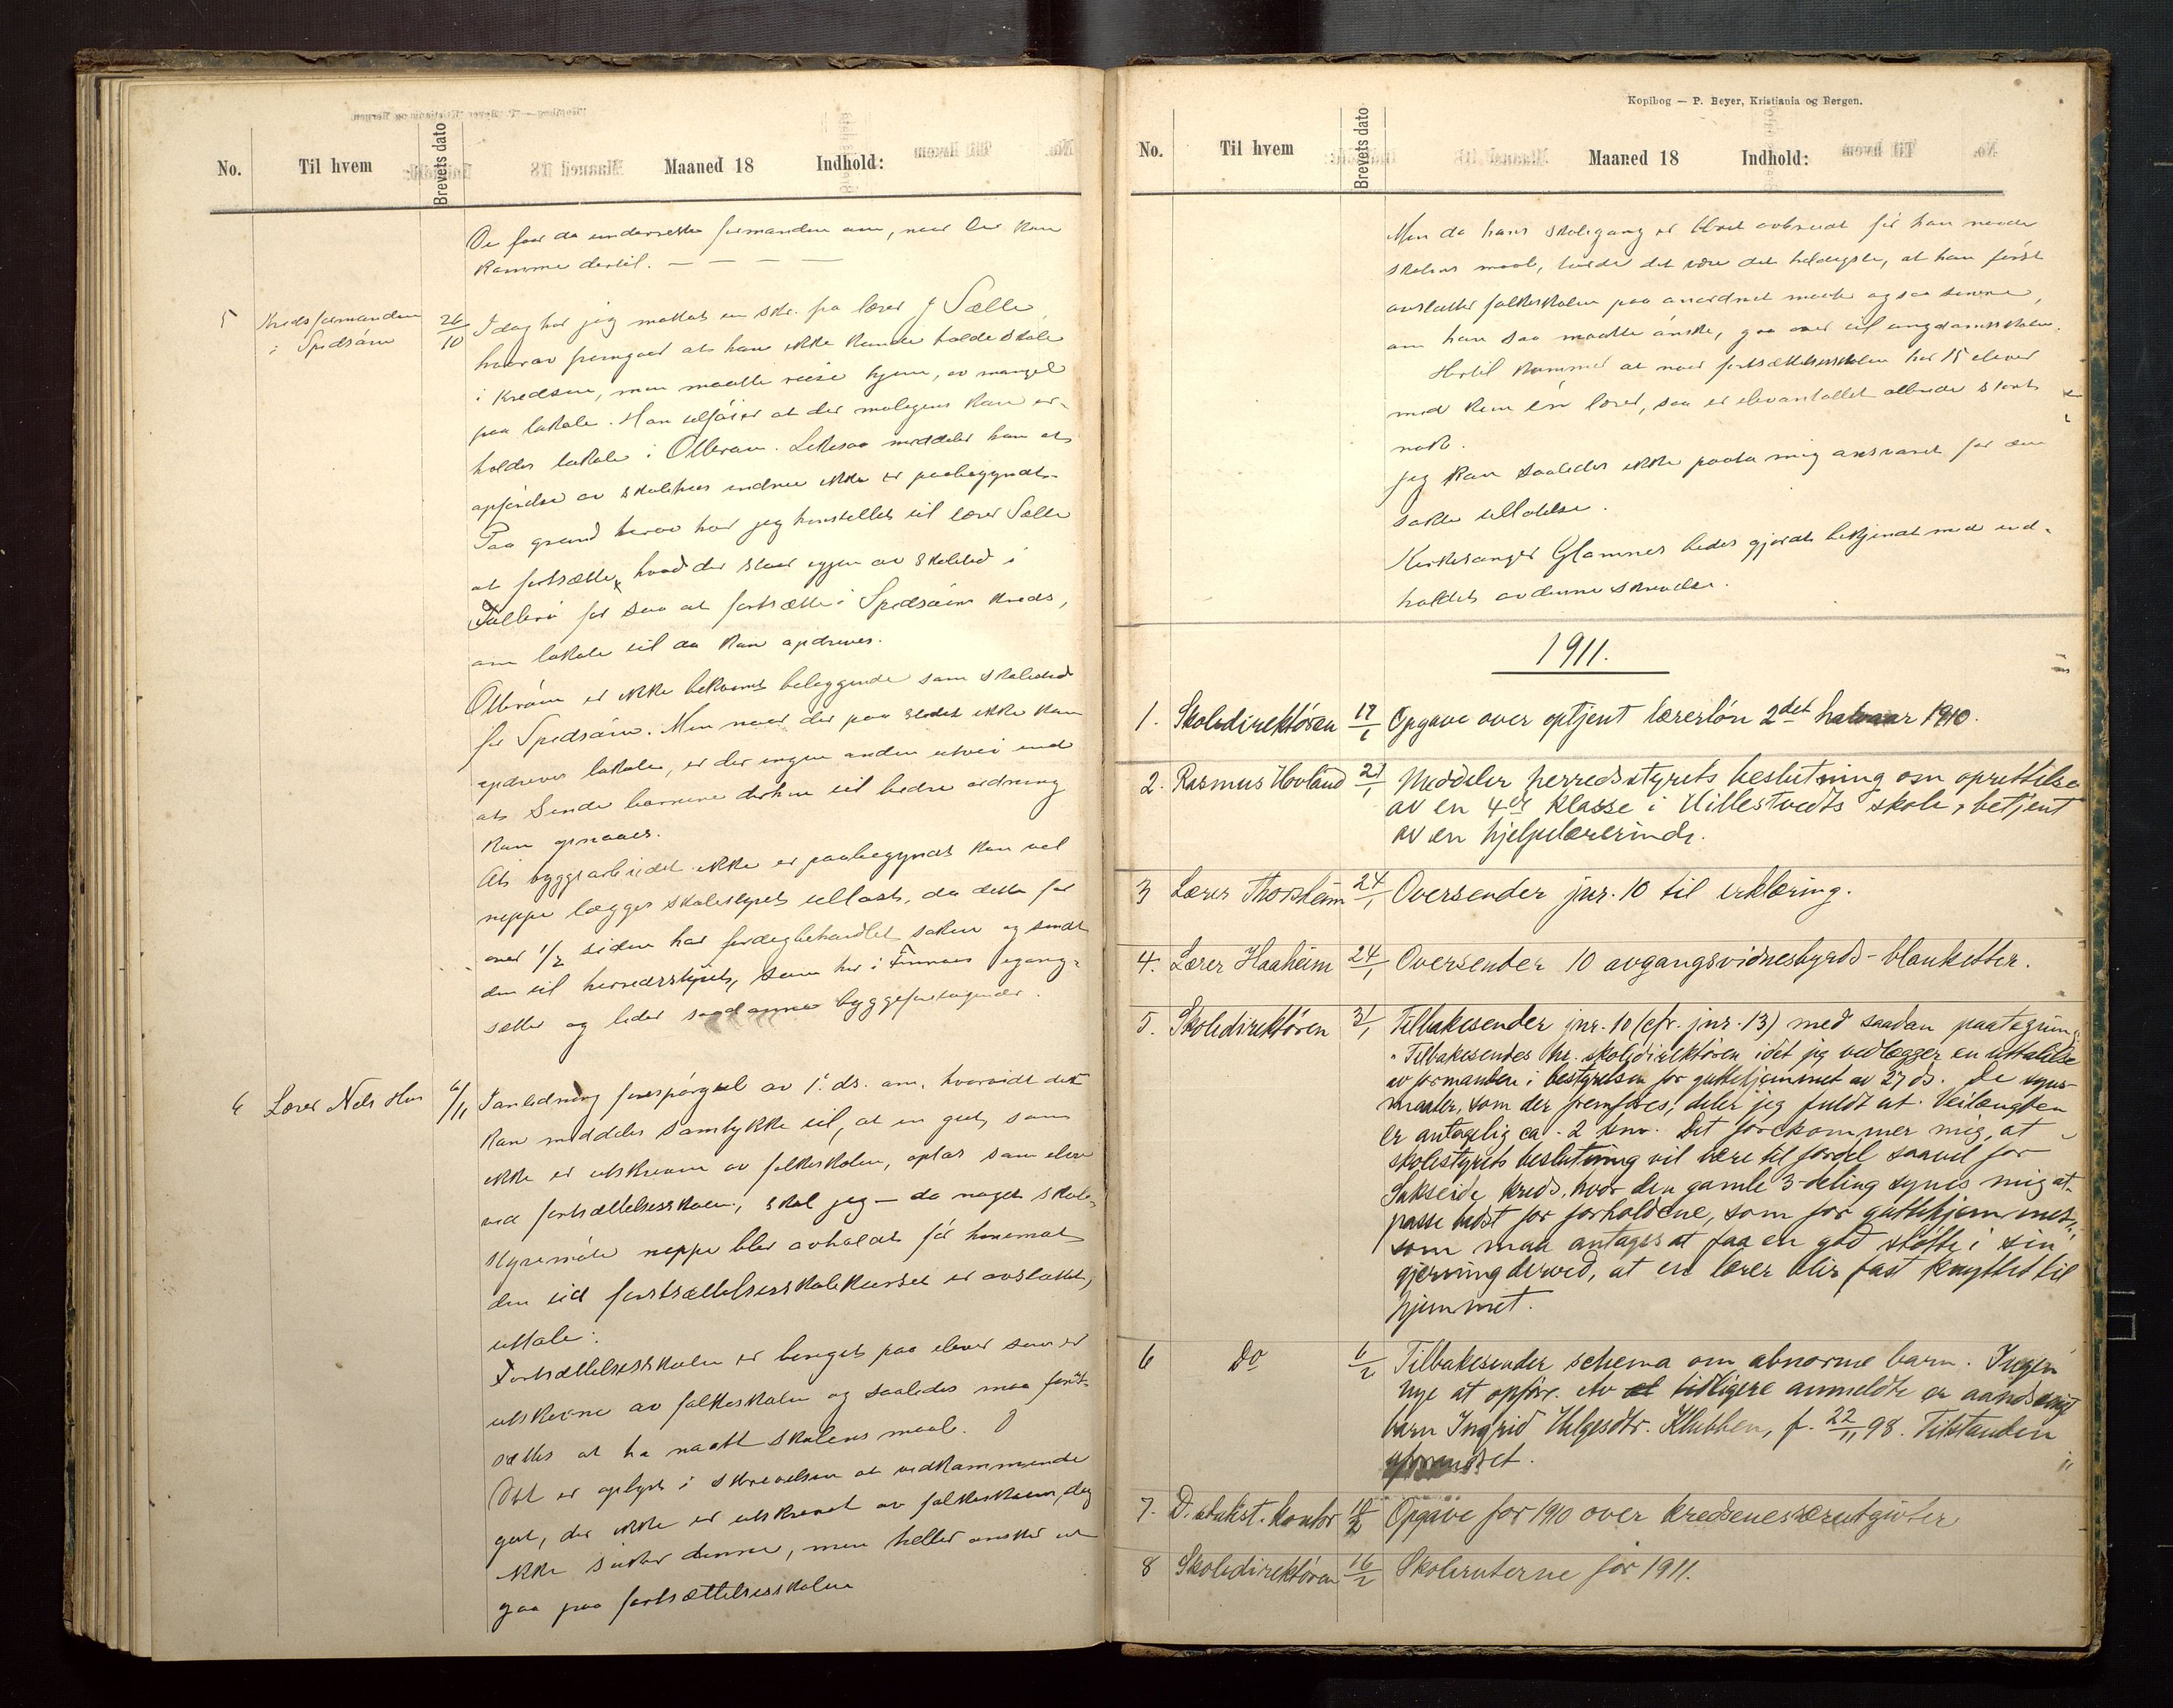 No. Til hvem Brevets dato Maaned 18 Indhold:
De faar da underrette formanden om, naar De kan
komme dertil. — — — —
5 Kredsformanden 26/10 Idag har jeg mottat en skr. fra lærer J Sælle
i Spedsåsen
hvorav fremgaar at han ikke kunde holde skole
i kredsen, men maatte reise hjem, av mangel
paa lokale. Han tilføier at der muligens kan er-
holdes lokale i Ollerøen. Likesaa meddeler han at
opførelse av skolehus endnu ikke er paabegyndt.
Paa grund herav har jeg henstillet til lærer Sælle
at fortsætte, hvad der staar igjen av skoletid i
for saa at fortsætte i kreds,
om lokale til da kan opdrives.
er ikke bekvemt beliggende som skolested
for Spedsåsen. Men naar der paa stedet ikke kan
opdrives lokale, er der ingen anden utvei end
at sende barnene derhen til bedre ordning
kan opnaaes.
At byggearbeidet ikke er paabegyndt kan vel
neppe lægges skolestyret tillast, da dette for
over 1/2 siden har færdigbehandlet saken og sendt
den til herredsstyret, som her i Finnaas igang-
sætter og leder saadanne byggeforetagender.
6 Lærer Nils Hus 6/11 I anledning forespørgsel av 1. ds. om, hvorvidt det
kan meddeles samtykke til, at en gut, som
ikke er utskreven av folkeskolen, optas som elev
ved fortsættelsesskolen, skal jeg — da noget skole-
styremøte neppe blir avholdt før henimot
den tid fortsættelsesskolekurset er avsluttet,
uttale:
Fortsættelsesskolen er beregnet paa elever som er
utskrevne av folkeskolen og saaledes maa forut-
sættes at ha naadd skolens maal.
Det er oplyst i skrivelsen at vedkommende
gut, der ikke er utskrevet av folkeskolen, dog
ikke søker denne, men heller ønsker at
gaa paa fortsættelsesskolen
Kopibog — P. Beyer, Kristiania og Bergen.
No. Til hvem Brevets dato Maaned 18 Indhold:
Men da hans skolegang er blevet avbrudt før han naadde
skolens maal, turde det være det heldigste, at han først
avslutter folkeskolen paa anordnet maate og saa senere,
om han saa maatte ønske, gaa over til ungdomsskolen.
Hertil kommer at naar fortsættelsesskolen har 15 elever
med kun én lærer, saa er elevantallet allerede stort
nok.
Jeg kan saaledes ikke paata mig ansvaret for den
søkte tillatelse.
Kirkesanger Glamnes bedes gjordt bekjendt med ind-
holdet av denne skrivelse.
1911.
1. Skoledirektøren 17/1 Opgave over optjent lærerløn 2det halvaar 1910.
2. Rasmus Hovland 21/1 Meddeler herredsstyrets beslutning om oprettelse
av en 4de klasse i Hillestvedts skole, betjent
av en hjelpelærerinde.
3 Lærer Thorsheim 24/1 Oversender jnr. 10 til erklæring.
4. Lærer Haaheim 24/1 Oversender 10 avgangsvidnesbyrds-blanketter.
5. Skoledirektøren 31/1 Tilbakesender jnr. 10 (cfr. jnr. 13) med saadan paategning
"Tilbakesendes hr. skoledirektøren idet jeg vedlægger en uttalelse
av formanden i bestyrelsen for guttehjemmet av 27 ds. De syns-
maater, som der fremføres, deler jeg fuldt ut. Veilængden
er antagelig ca. 2 km. Det forekommer mig, at
skolestyrets beslutning vil være til fordel saavel for
Sakseide kreds, hvor den gamle 3-deling synes mig at
passe bedst for forholdene, som for guttehjemmet,
som maa antages at faa en god støtte i sin
gjerning derved, at en lærer blir fast knyttet til
hjemmet.
6 Do 6/2 Tilbakesender schema om abnorme barn. Ingen
nye at opføre. Av tidligere anmeldte er aandssvagt
barn Ingrid Helgesdtr. Klubben, f. 22/11 98. Tilstanden
uforandret.
7. D. statist. kontor 10/2 Opgave for 1910 over kredsenes særutgifter
8 Skoledirektøren 16/2 Skoleruterne for 1911.